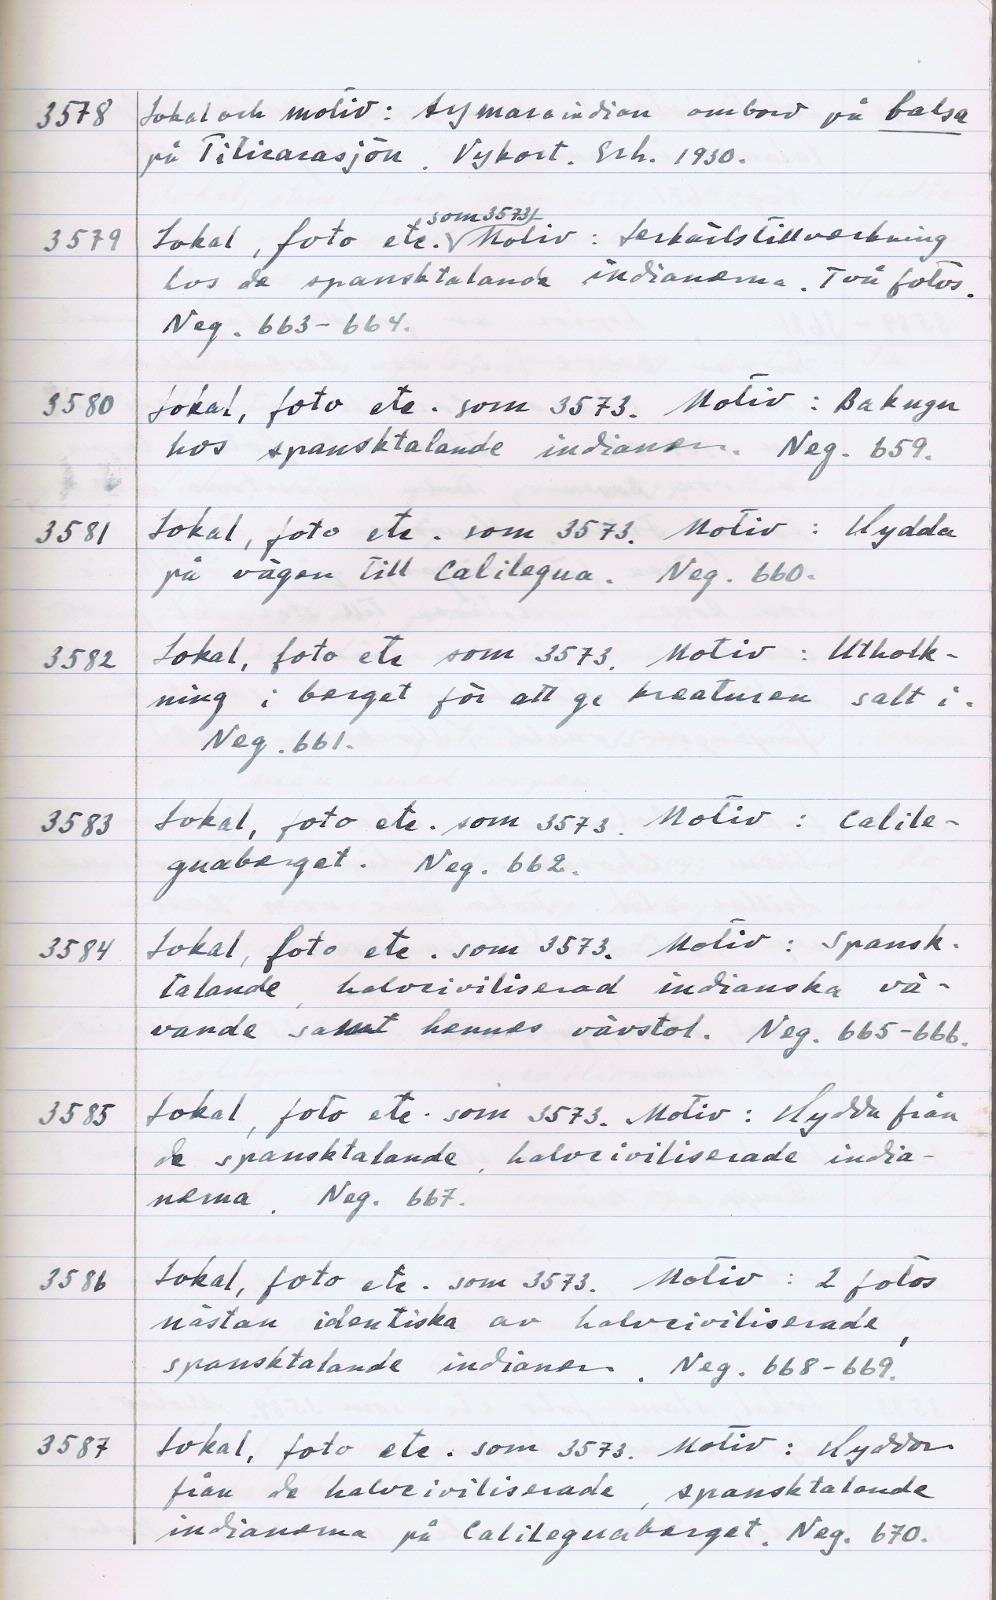 3578 Lokal och motiv: Aymaraindian ombord på balsa
på Titicacasjön. Vykort. Erh. 1930.
som 3573
3579 Lokal, foto etc. Motiv: Lerkärlstillverkning
hos de spansktalande indianerna. Två fotos.
Neg. 663-664.
3580 Lokal, foto etc. som 3573. Motiv: Bakugn
hos spansktalande indianer. Neg. 659.
3581 Lokal, foto etc. som 3573. Motiv: Hydda
på vägen till Calilegua. Neg. 660.
3582 Lokal, foto etc som 3573. Motiv: Utholk-
ning i berget för att ge kreaturen salt i.
Neg. 661.
3583 Lokal, foto etc. som 3573. Motiv: Calile-
guaberget. Neg. 662.
3584 Lokal, foto etc. som 3573. Motiv: Spansk-
talande, halvciviliserad indianska vä-
vande samt hennes vävstol. Neg. 665-666.
3585 Lokal, foto etc. som 3573. Motiv: Hydda från
de spansktalande, halvciviliserade india-
nerna. Neg. 667.
3586 Lokal, foto etc. som 3573. Motiv: 2 fotos
nästan identiska av halvciviliserade,
spansktalande indianer. Neg. 668-669.
3587 Lokal, foto etc. som 3573. Motiv: Hyddor
från de halvciviliserade, spansktalande
indianerna på Calileguaberget. Neg. 670.